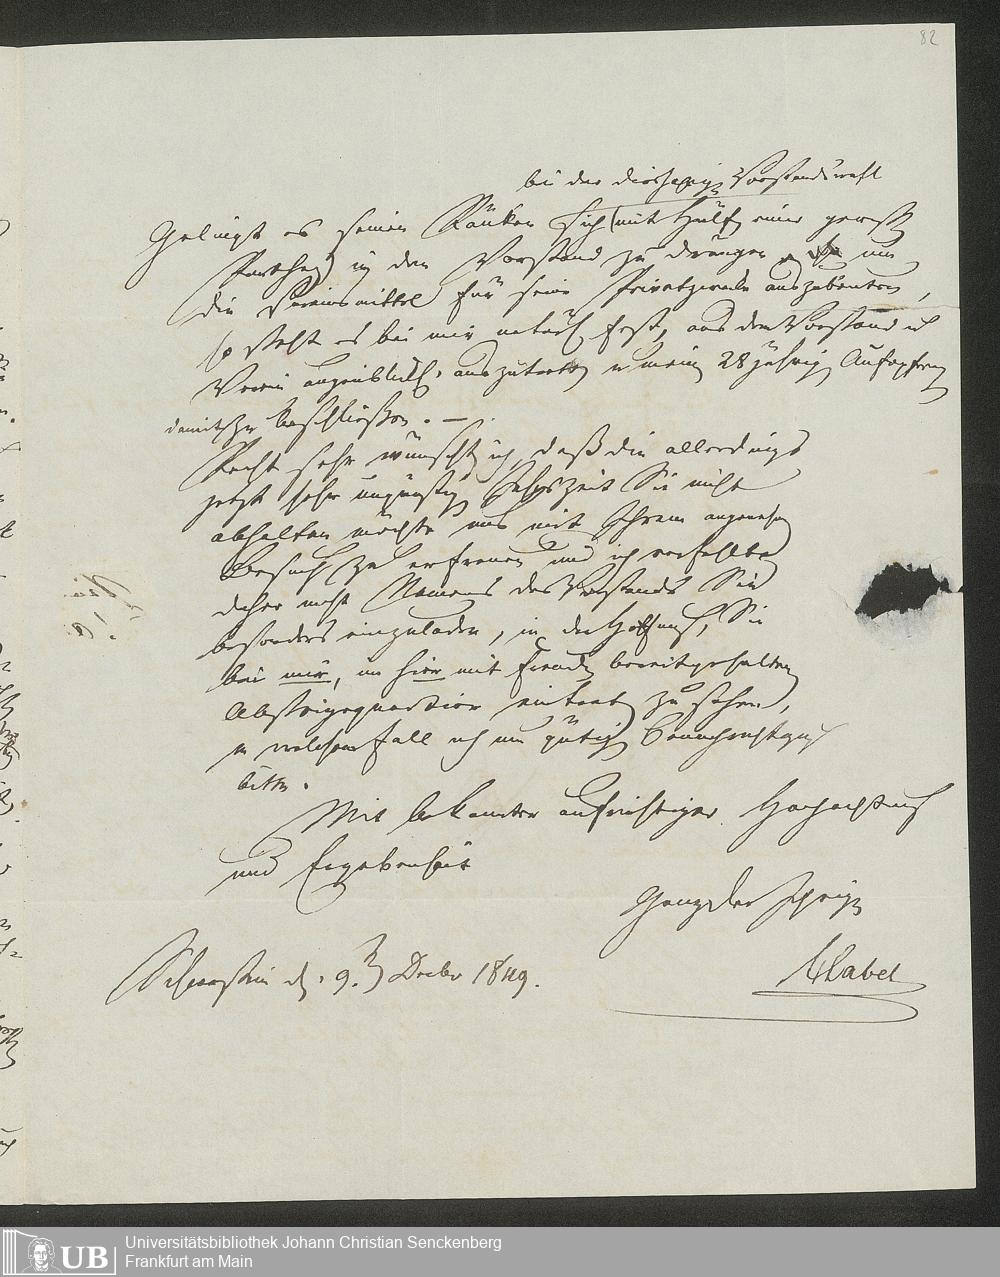 82
bei der diesjährigen Vorstandswahl
Gelingt es seinen Ränken sich (mit Hülfe einer gewissen
Parthei) in den Vorstand zu drängen um
die Vereinsmittel für seine Privatzwecke auszubeuten,
so steht es bei mir fest, aus dem Vorstand u
Verein augenblicklich auszutreten u. meine 28 jährige Aufopferung
damit zu beschließen. —
Recht sehr wünschte ich, daß die allerdings
jetzt sehr ungünstige Jahrszeit Sie nicht
abhalten möchte uns mit Ihrem angenehmen
Besuch zu erfreuen und ich verfehlte
daher nicht Namens des Vorstands Sie
besonders einzuladen, in der Hoffnung, Sie
bei mir, im hier mit Freuden bereitgehaltenen
Absteigequartier eintreten zu sehen,
in welchem Fall ich um gütige Benachrichtigung
bitte.
Mit bekannter aufrichtiger Hochachtung
und Ergebenheit
Ganz der Ihrige
Habel
Schierstein d. 9. Decbr 1849.
UB
Universitätsbibliothek Johann Christian Senckenberg
Frankfurt am Main